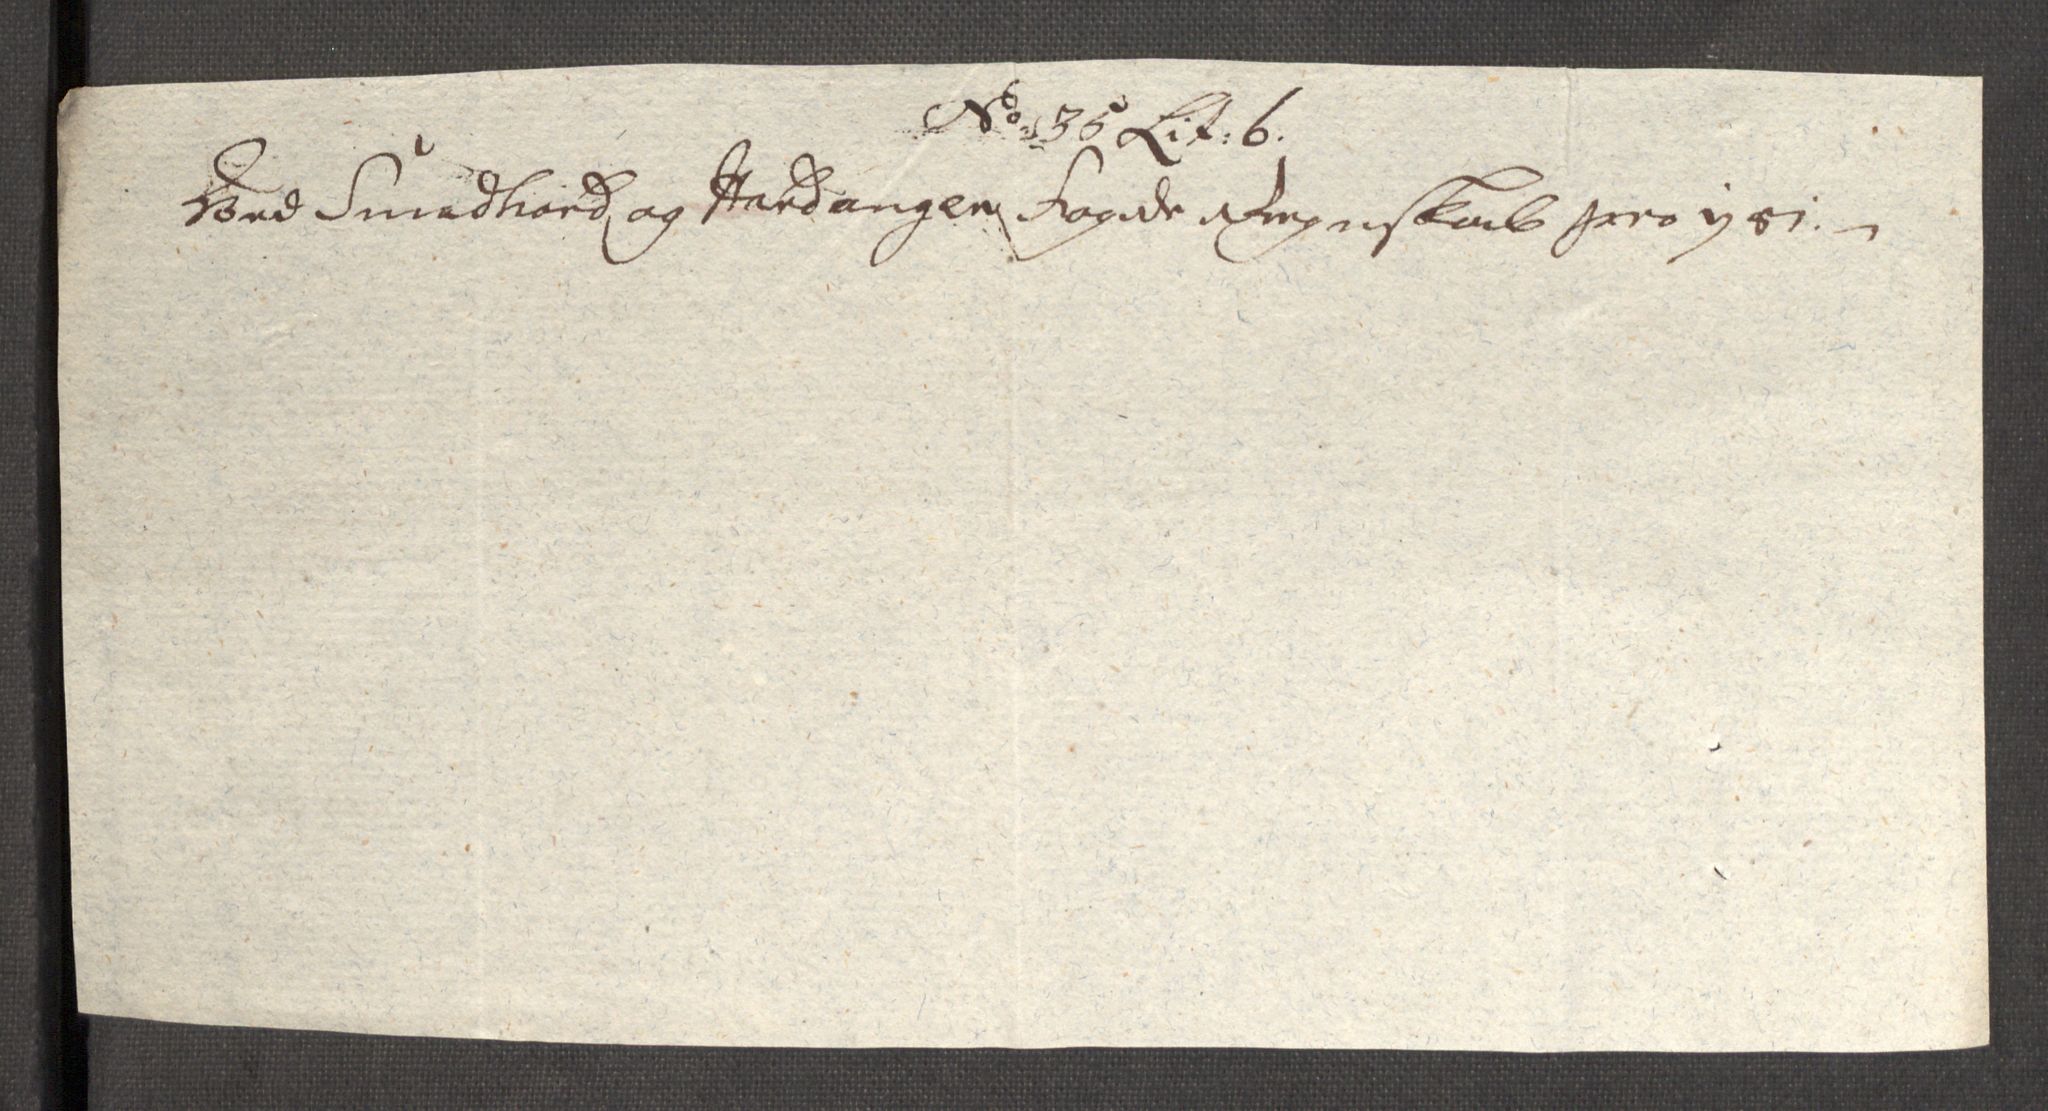 No: 35 Lit: b.
Ved Sundhord og Hardanger Fogde Regnskab pro